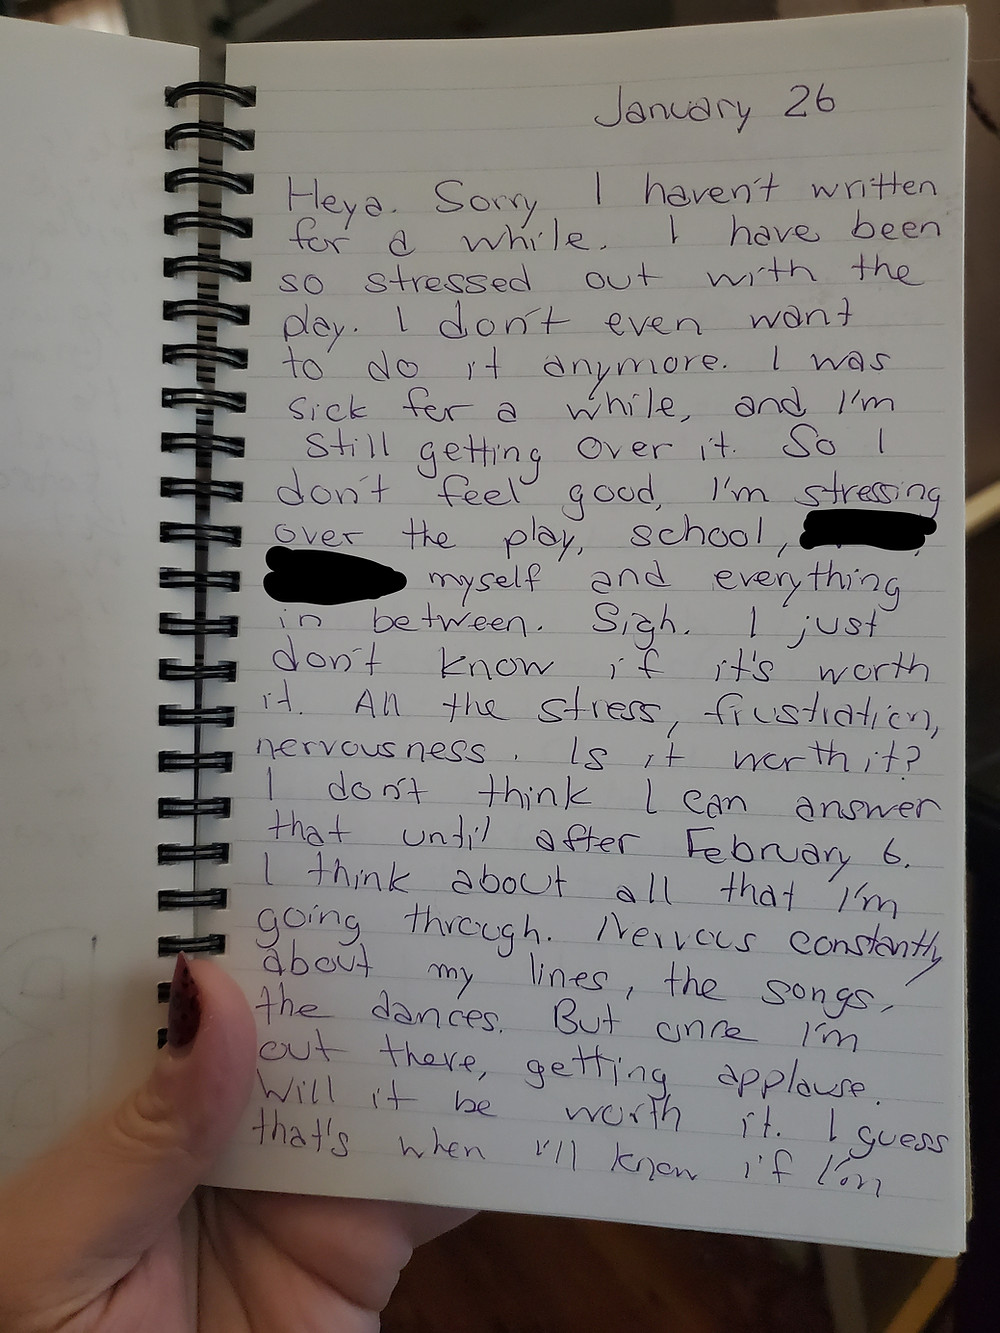 January 26
Heya. Sorry I haven't written
for a while. I have been
so stressed out with the
play. I don't even want
to do it anymore. I was
sick for a while, and I'm
still getting over it. So I
don't feel good, I'm stressing
over the play, school,
myself and everything
in between. Sigh. I just
don't know if it's worth
it. All the stress, frustration,
nervousness. Is it worth it?
I don't think I can answer
that until after February 6.
I think about all that I'm
going through. Nervous constantly
about my lines, the songs,
the dances. But once I'm
out there, getting applause.
Will it be worth it. I guess
that's when I'll know if I'm